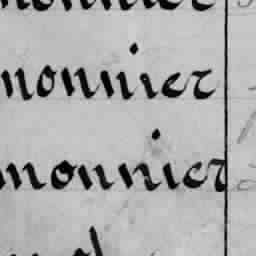 monnier
monnier
monnier